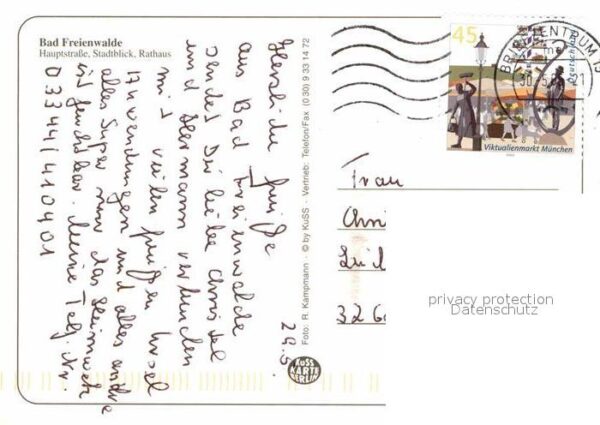 Bad Freienwalde
Hauptstraße, Stadtblick, Rathaus
29.5.
Herzliche Grüße
aus Bad Freienwalde
sendet Dir liebe Christel
und Hermann verbunden
mit vielen Grüßen
Anwendungen und alles andre
alles super nur das Heimweh
ist furchtbar. Meine Telf. Nr
03344/410401
Foto: R. Kampmann · © by KuSS · Vertrieb: Telefon/Fax (0 30) 9 33 14 72
KUSS
KARTE
BERLIN
45
Deutschland
Viktualienmarkt München
BRIEFZENTRUM 15
Frau
privacy protection
Datenschutz